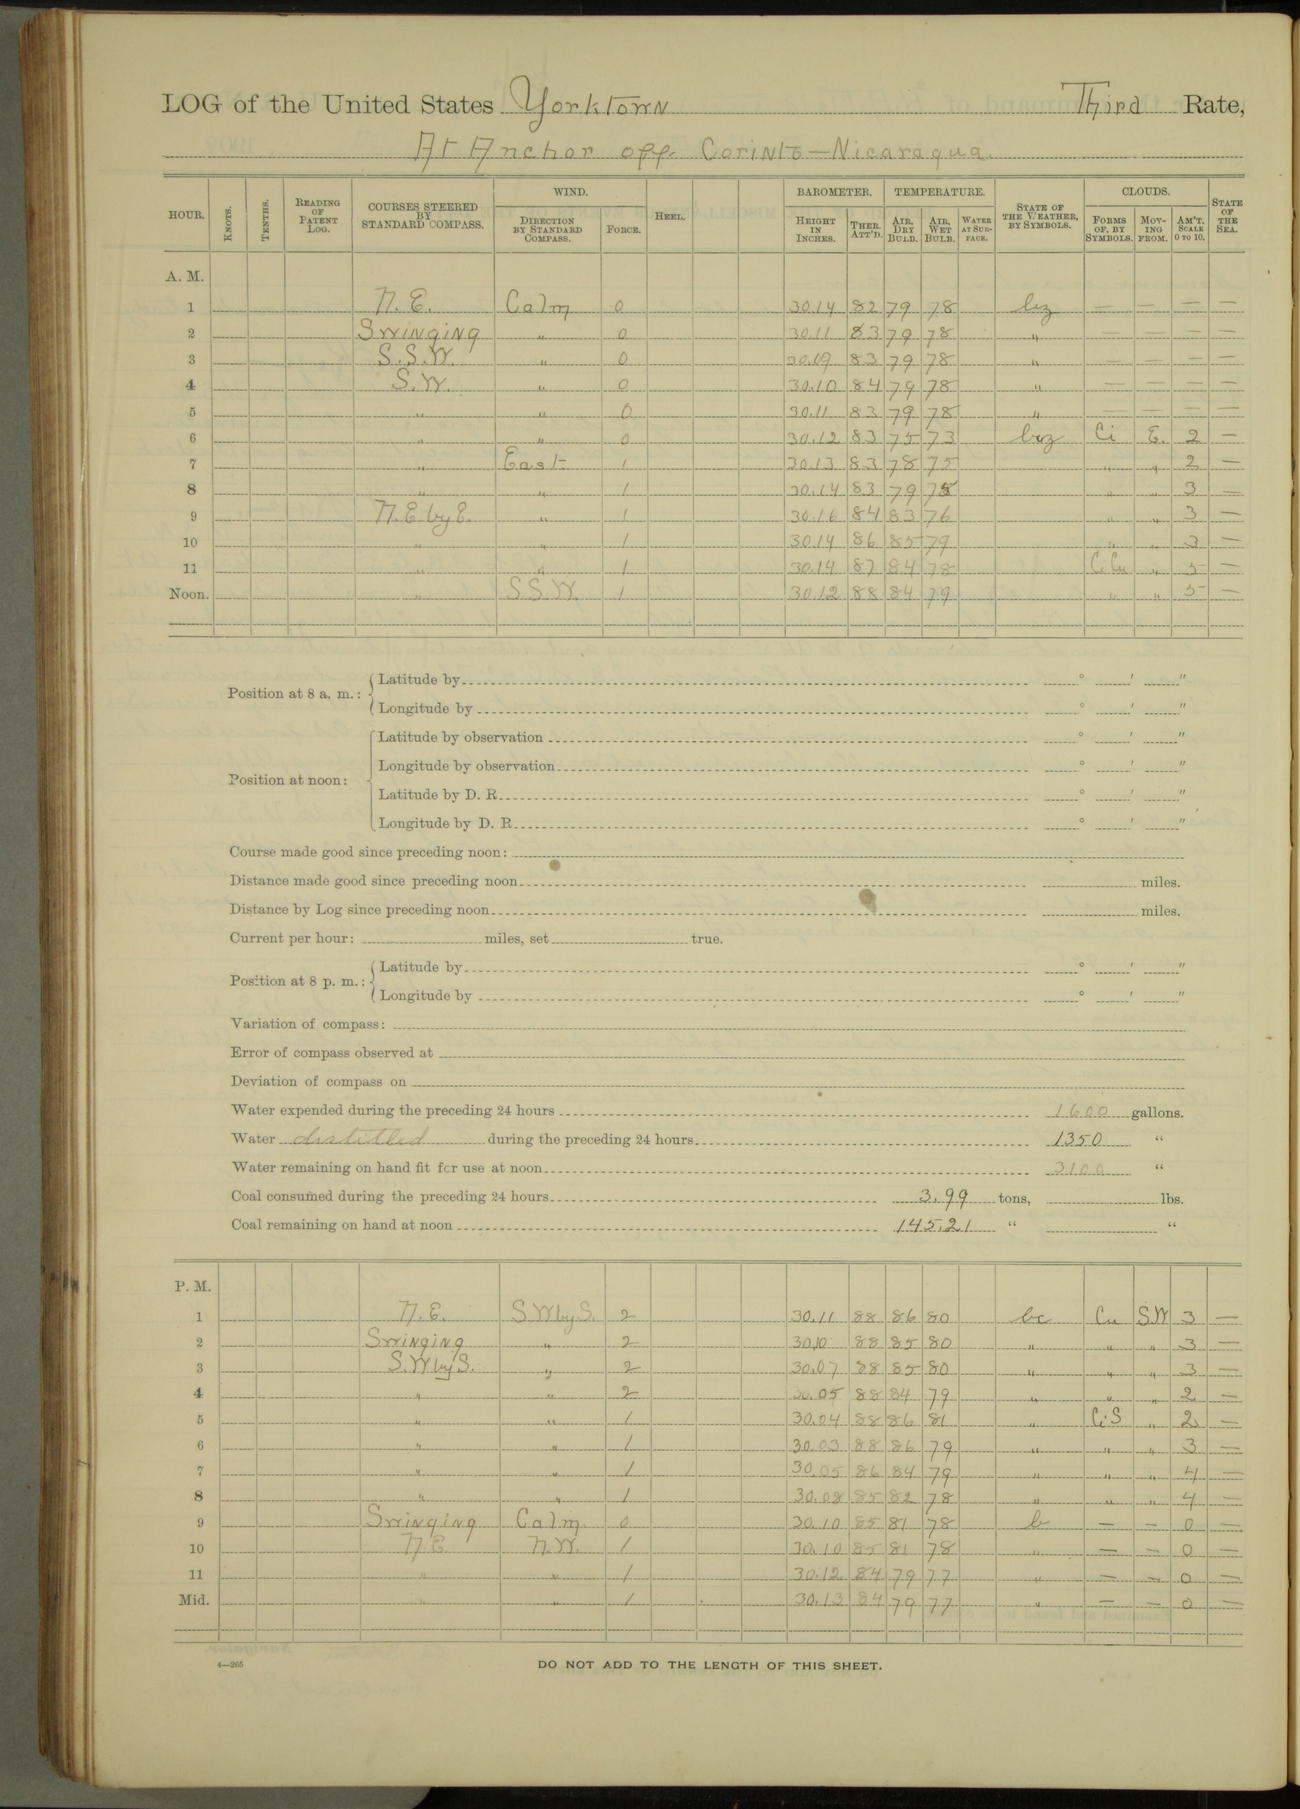 LOG of the United States Yorktown Third Rate,
At Anchor off Corinto—Nicaragua.
HOUR. KNOTS. TENTHS. READING OF PATENT LOG. COURSES STEERED BY STANDARD COMPASS. WIND. DIRECTION BY STANDARD COMPASS. FORCE. HEEL. BAROMETER. HEIGHT IN INCHES. THER. ATT'D. TEMPERATURE. AIR, DRY BULB. AIR, WET BULB. WATER AT SURFACE. STATE OF THE WEATHER, BY SYMBOLS. CLOUDS. FORMS OF, BY SYMBOLS. MOVING FROM. AM'T. SCALE 0 TO 10. STATE OF THE SEA.
A. M.
1 N.E. Calm 0 30.14 82 79 78 bz — — — —
2 Swinging " 0 30.11 83 79 78 " — — — —
3 S.S.W. " 0 30.09 83 79 78 " — — — —
4 S.W. " 0 30.10 84 79 78 " — — — —
5 " " 0 30.11 83 79 78 " — — — —
6 " " 0 30.12 83 75 73 bcz Ci E. 2 —
7 " East 1 30.13 83 78 75 " " 2 —
8 " " 1 30.14 83 79 75 " " 3 —
9 N.E. by E. " 1 30.16 84 83 76 " " 3 —
10 " " 1 30.14 86 85 79 " " 3 —
11 " " 1 30.14 87 84 78 Ci.Cu " 5 —
Noon. " S.S.W. 1 30.12 88 84 79 " " 5 —
Position at 8 a. m.: Latitude by ° ' "
Longitude by ° ' "
Position at noon: Latitude by observation ° ' "
Longitude by observation ° ' "
Latitude by D. R. ° ' "
Longitude by D. R. ° ' "
Course made good since preceding noon:
Distance made good since preceding noon miles.
Distance by Log since preceding noon miles.
Current per hour: miles, set true.
Position at 8 p. m.: Latitude by ° ' "
Longitude by ° ' "
Variation of compass:
Error of compass observed at
Deviation of compass on
Water expended during the preceding 24 hours 1600 gallons.
Water distilled during the preceding 24 hours 1350 "
Water remaining on hand fit for use at noon 3100 "
Coal consumed during the preceding 24 hours 3.99 tons, lbs.
Coal remaining on hand at noon 145.21 " "
P. M.
1 N.E. S.W by S. 2 30.11 88 86 80 bc Cu S.W 3 —
2 Swinging " 2 30.10 88 85 80 " " " 3 —
3 S.W by S. " 2 30.07 88 85 80 " " " 3 —
4 " " 2 30.05 88 84 79 " " " 2 —
5 " " 1 30.04 88 86 81 " Ci.S " 2 —
6 " " 1 30.03 88 86 79 " " " 3 —
7 " " 1 30.05 86 84 79 " " " 4 —
8 " " 1 30.08 85 82 78 " " " 4 —
9 Swinging Calm 0 30.10 85 81 78 b — — 0 —
10 N.E. N.W. 1 30.10 85 81 78 " — — 0 —
11 " " 1 30.12 84 79 77 " — — 0 —
Mid. " " 1 30.13 84 79 77 " — — 0 —
4—265
DO NOT ADD TO THE LENGTH OF THIS SHEET.